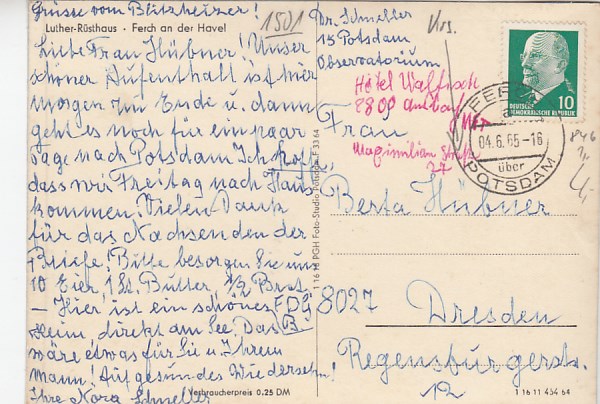 Grüsse vom Blützheizer!
Luther-Rüsthaus · Ferch an der Havel
Liebe Frau Hübner! Unser
schöner Aufenthalt ist hier
morgen zu Ende u. dann
geht es noch für ein paar
Tage nach Potsdam. Ich hoffe,
dass wir Freitag nach Haus
kommen. Vielen Dank
für das Nachsenden der
Briefe! Bitte besorgen Sie uns
10 Eier, 1 St. Butter, 1/2 Brot.
– Hier ist ein schönes FDGB
heim direkt am See. Das
wäre etwas für Sie u. Ihrem
Mann! Auf gesundes Wiedersehn!
Ihre Nora Schmeller
Verbraucherpreis 0,25 DM
1 16 18 PGH Foto-Studio Potsdam F 33 64
1501
Dr. Schmeller
15 Potsdam
Observatorium
Vrs.
Hotel Walfisch
8800
Maximilian
27
DEUTSCHE
DEMOKRATISCHE REPUBLIK
10
FERCH
04.6.65-16
über
POTSDAM
Frau
Berta Hübner
8027 Dresden
Regensburgerstr.
12
1 16 11 454 64